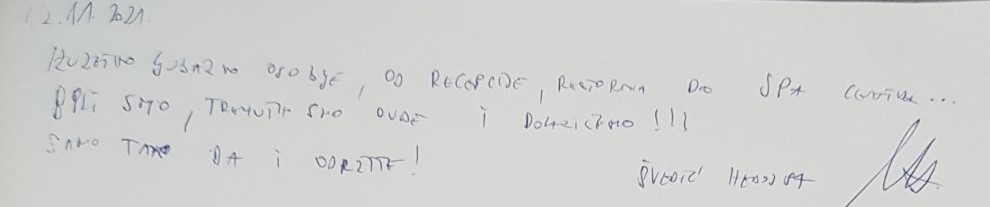 2.11.2021.
Izuzetno ljubazno osoblje, od recepcije, restorana do SPA centra...
Bili smo, trenutno smo ovde i dolazićemo!!!
Samo tako da i održite!
Švedić